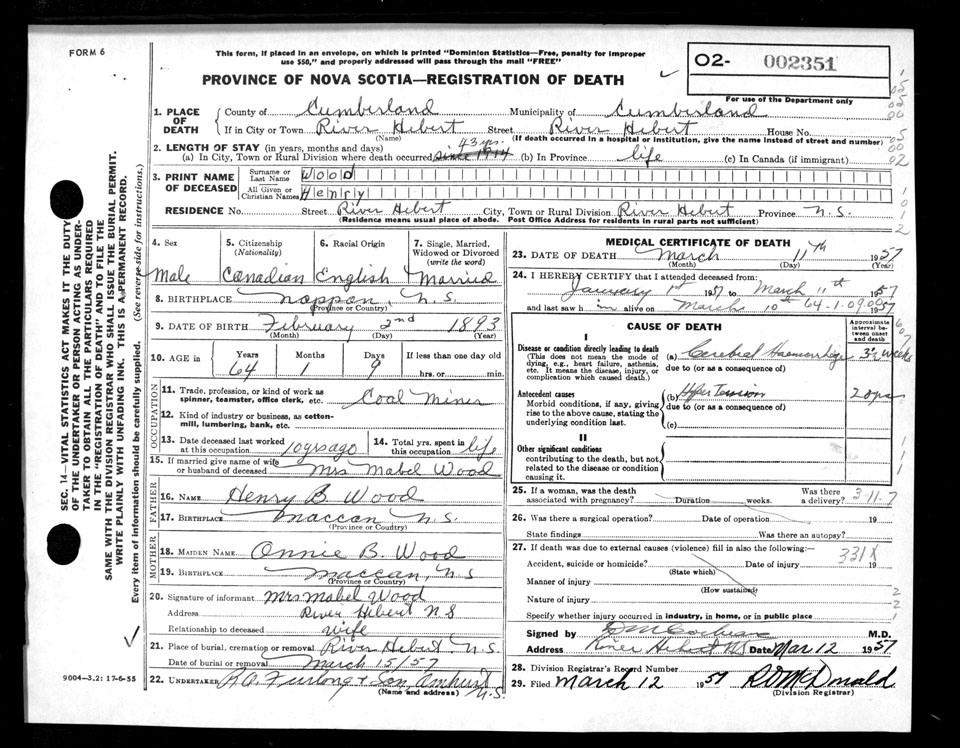 FORM 6
This form, if placed in an envelope, on which is printed "Dominion Statistics—Free, penalty for improper
use $50," and properly addressed will pass through the mail "FREE"
PROVINCE OF NOVA SCOTIA—REGISTRATION OF DEATH
O2- 002351
For use of the Department only
1. PLACE OF DEATH
County of Cumberland Municipality of Cumberland
If in City or Town River Hebert Street River Hebert House No.
(Name) (If death occurred in a hospital or institution, give the name instead of street and number)
2. LENGTH OF STAY (in years, months and days)
(a) In City, Town or Rural Division where death occurred 43 yrs. since 1914 (b) In Province life (c) In Canada (if immigrant)
3. PRINT NAME OF DECEASED
Surname or Last Name Wood
All Given or Christian Names Henry
RESIDENCE No. Street River Hebert City, Town or Rural Division River Hebert Province N.S.
(Residence means usual place of abode. Post Office Address for residents in rural parts not sufficient)
4. Sex Male
5. Citizenship (Nationality) Canadian
6. Racial Origin English
7. Single, Married, Widowed or Divorced (write the word) Married
8. BIRTHPLACE Nappan, N.S.
(Province or Country)
9. DATE OF BIRTH February 2nd 1893
(Month) (Day) (Year)
10. AGE in Years 64 Months 1 Days 9 If less than one day old hrs. or min.
OCCUPATION
11. Trade, profession, or kind of work as spinner, teamster, office clerk, etc. Coal Miner
12. Kind of industry or business, as cotton-mill, lumbering, bank, etc.
13. Date deceased last worked at this occupation 10 yrs ago
14. Total yrs. spent in this occupation life
15. If married give name of wife or husband of deceased Mrs Mabel Wood
FATHER
16. NAME Henry B. Wood
17. BIRTHPLACE Maccan N.S.
(Province or Country)
MOTHER
18. MAIDEN NAME Annie B. Wood
19. BIRTHPLACE Maccan, N.S
(Province or Country)
20. Signature of informant Mrs Mabel Wood
Address River Hebert N S
Relationship to deceased wife
21. Place of burial, cremation or removal River Hebert, N.S.
Date of burial or removal March 15/57
22. UNDERTAKER R.A. Furlong & Son, Amherst N.S.
(Name and address)
MEDICAL CERTIFICATE OF DEATH
23. DATE OF DEATH March 11th 1957
(Month) (Day) (Year)
24. I HEREBY CERTIFY that I attended deceased from:
January 1st 1957 to March 11th 1957
and last saw h im alive on March 10th 64-1-09.00 1957
CAUSE OF DEATH
Approximate interval between onset and death
I
Disease or condition directly leading to death
(This does not mean the mode of dying, e.g., heart failure, asthenia, etc. It means the disease, injury, or complication which caused death.)
(a) Cerebral Haemorrhage 3½ weeks
due to (or as a consequence of)
Antecedent causes
Morbid conditions, if any, giving rise to the above cause, stating the underlying condition last.
(b) Hyper Tension
due to (or as a consequence of)
(c)
II
Other significant conditions
contributing to the death, but not related to the disease or condition causing it.
25. If a woman, was the death associated with pregnancy? Duration weeks. Was there a delivery? 3-11.7
26. Was there a surgical operation? Date of operation 19
State findings Was there an autopsy?
27. If death was due to external causes (violence) fill in also the following:— 331X
Accident, suicide or homicide? Date of injury 19
(State which)
Manner of injury
(How sustained)
Nature of injury
Specify whether injury occurred in industry, in home, or in public place
Signed by M.D.
Address River Hebert NS Date Mar 12 1957
28. Division Registrar's Record Number
29. Filed March 12 1957 R D McDonald
(Division Registrar)
SEC. 14—VITAL STATISTICS ACT MAKES IT THE DUTY
OF THE UNDERTAKER OR PERSON ACTING AS UNDER-
TAKER TO OBTAIN ALL THE PARTICULARS REQUIRED
IN THE "REGISTRATION OF DEATH" AND TO FILE THE
SAME WITH THE DIVISION REGISTRAR WHO SHALL ISSUE THE BURIAL PERMIT.
WRITE PLAINLY WITH UNFADING INK. THIS IS A PERMANENT RECORD.
Every item of information should be carefully supplied. (See reverse side for instructions.)
9004—3.2: 17-6-55